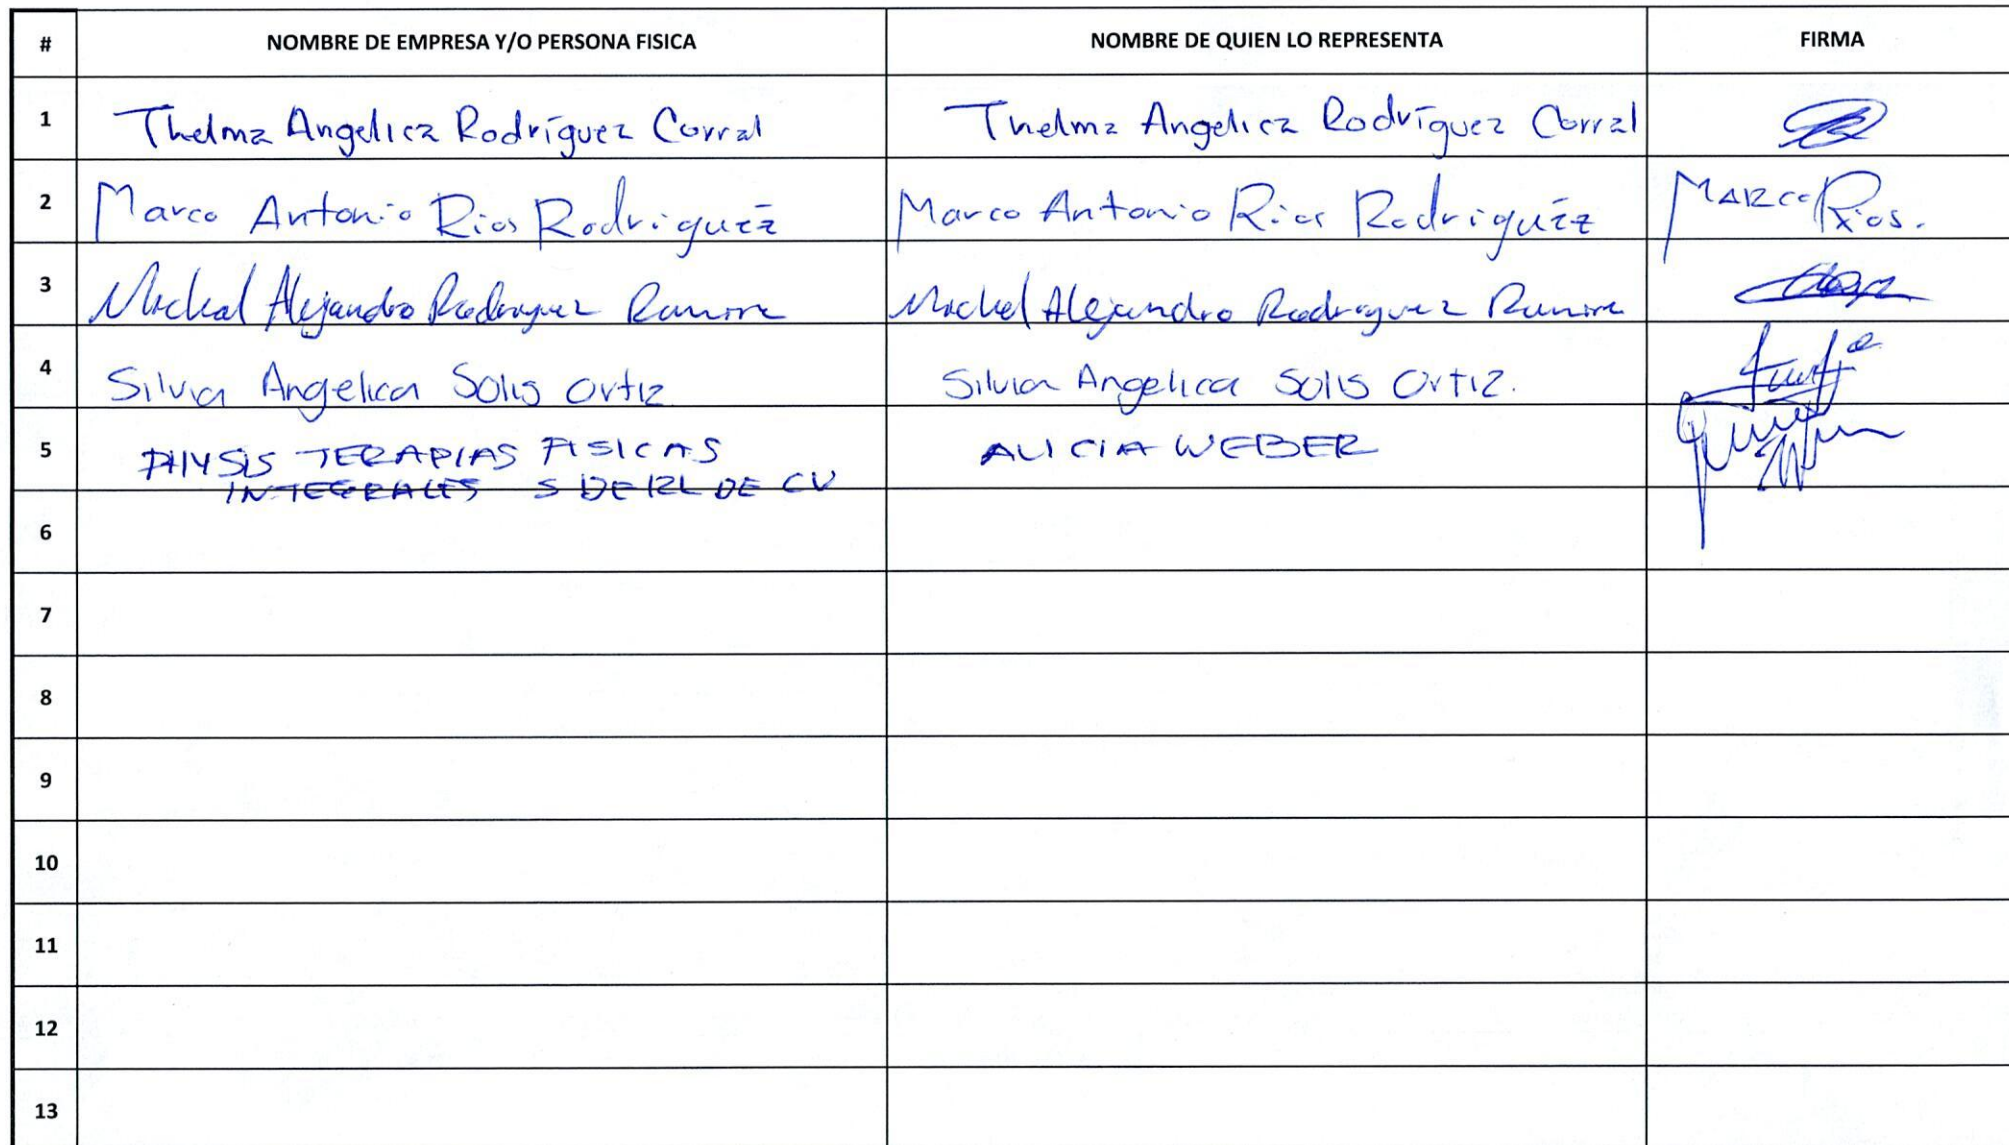 # NOMBRE DE EMPRESA Y/O PERSONA FISICA NOMBRE DE QUIEN LO REPRESENTA FIRMA
1 Thelma Angelica Rodríguez Corral Thelma Angelica Rodríguez Corral
2 Marco Antonio Rios Rodriguéz Marco Antonio Rios Rodriguéz Marco Rios.
3 Alejandro Rodriguez Alejandro Rodriguez
4 Silvia Angelica Solis Ortiz Silvia Angelica Solis Ortiz.
5 PHYSIS TERAPIAS FISICAS ALICIA WEBER
INTEGRALES S DE RL DE CV
6
7
8
9
10
11
12
13